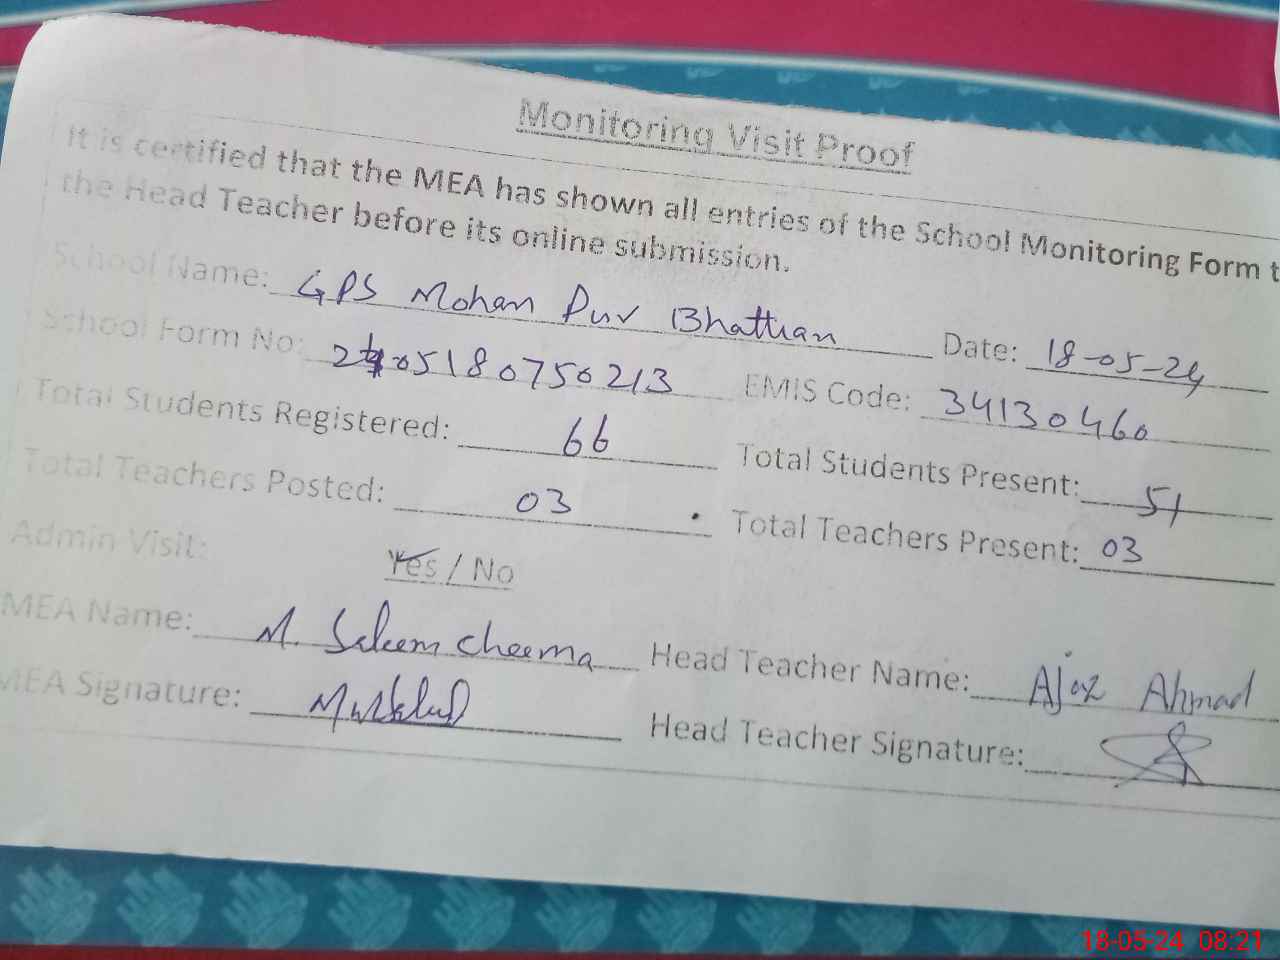 Monitoring Visit Proof
It is certified that the MEA has shown all entries of the School Monitoring Form t
the Head Teacher before its online submission.
School Name: GPS Mohan Pur Bhattian Date: 18-05-24
School Form No: 2405180750213 EMIS Code: 34130460
Total Students Registered: 66 Total Students Present: 51
Total Teachers Posted: 03 Total Teachers Present: 03
Admin Visit: Yes / No
MEA Name: M. Saleem Cheema Head Teacher Name: Ajaz Ahmad
MEA Signature: Head Teacher Signature:
18-05-24 08:21